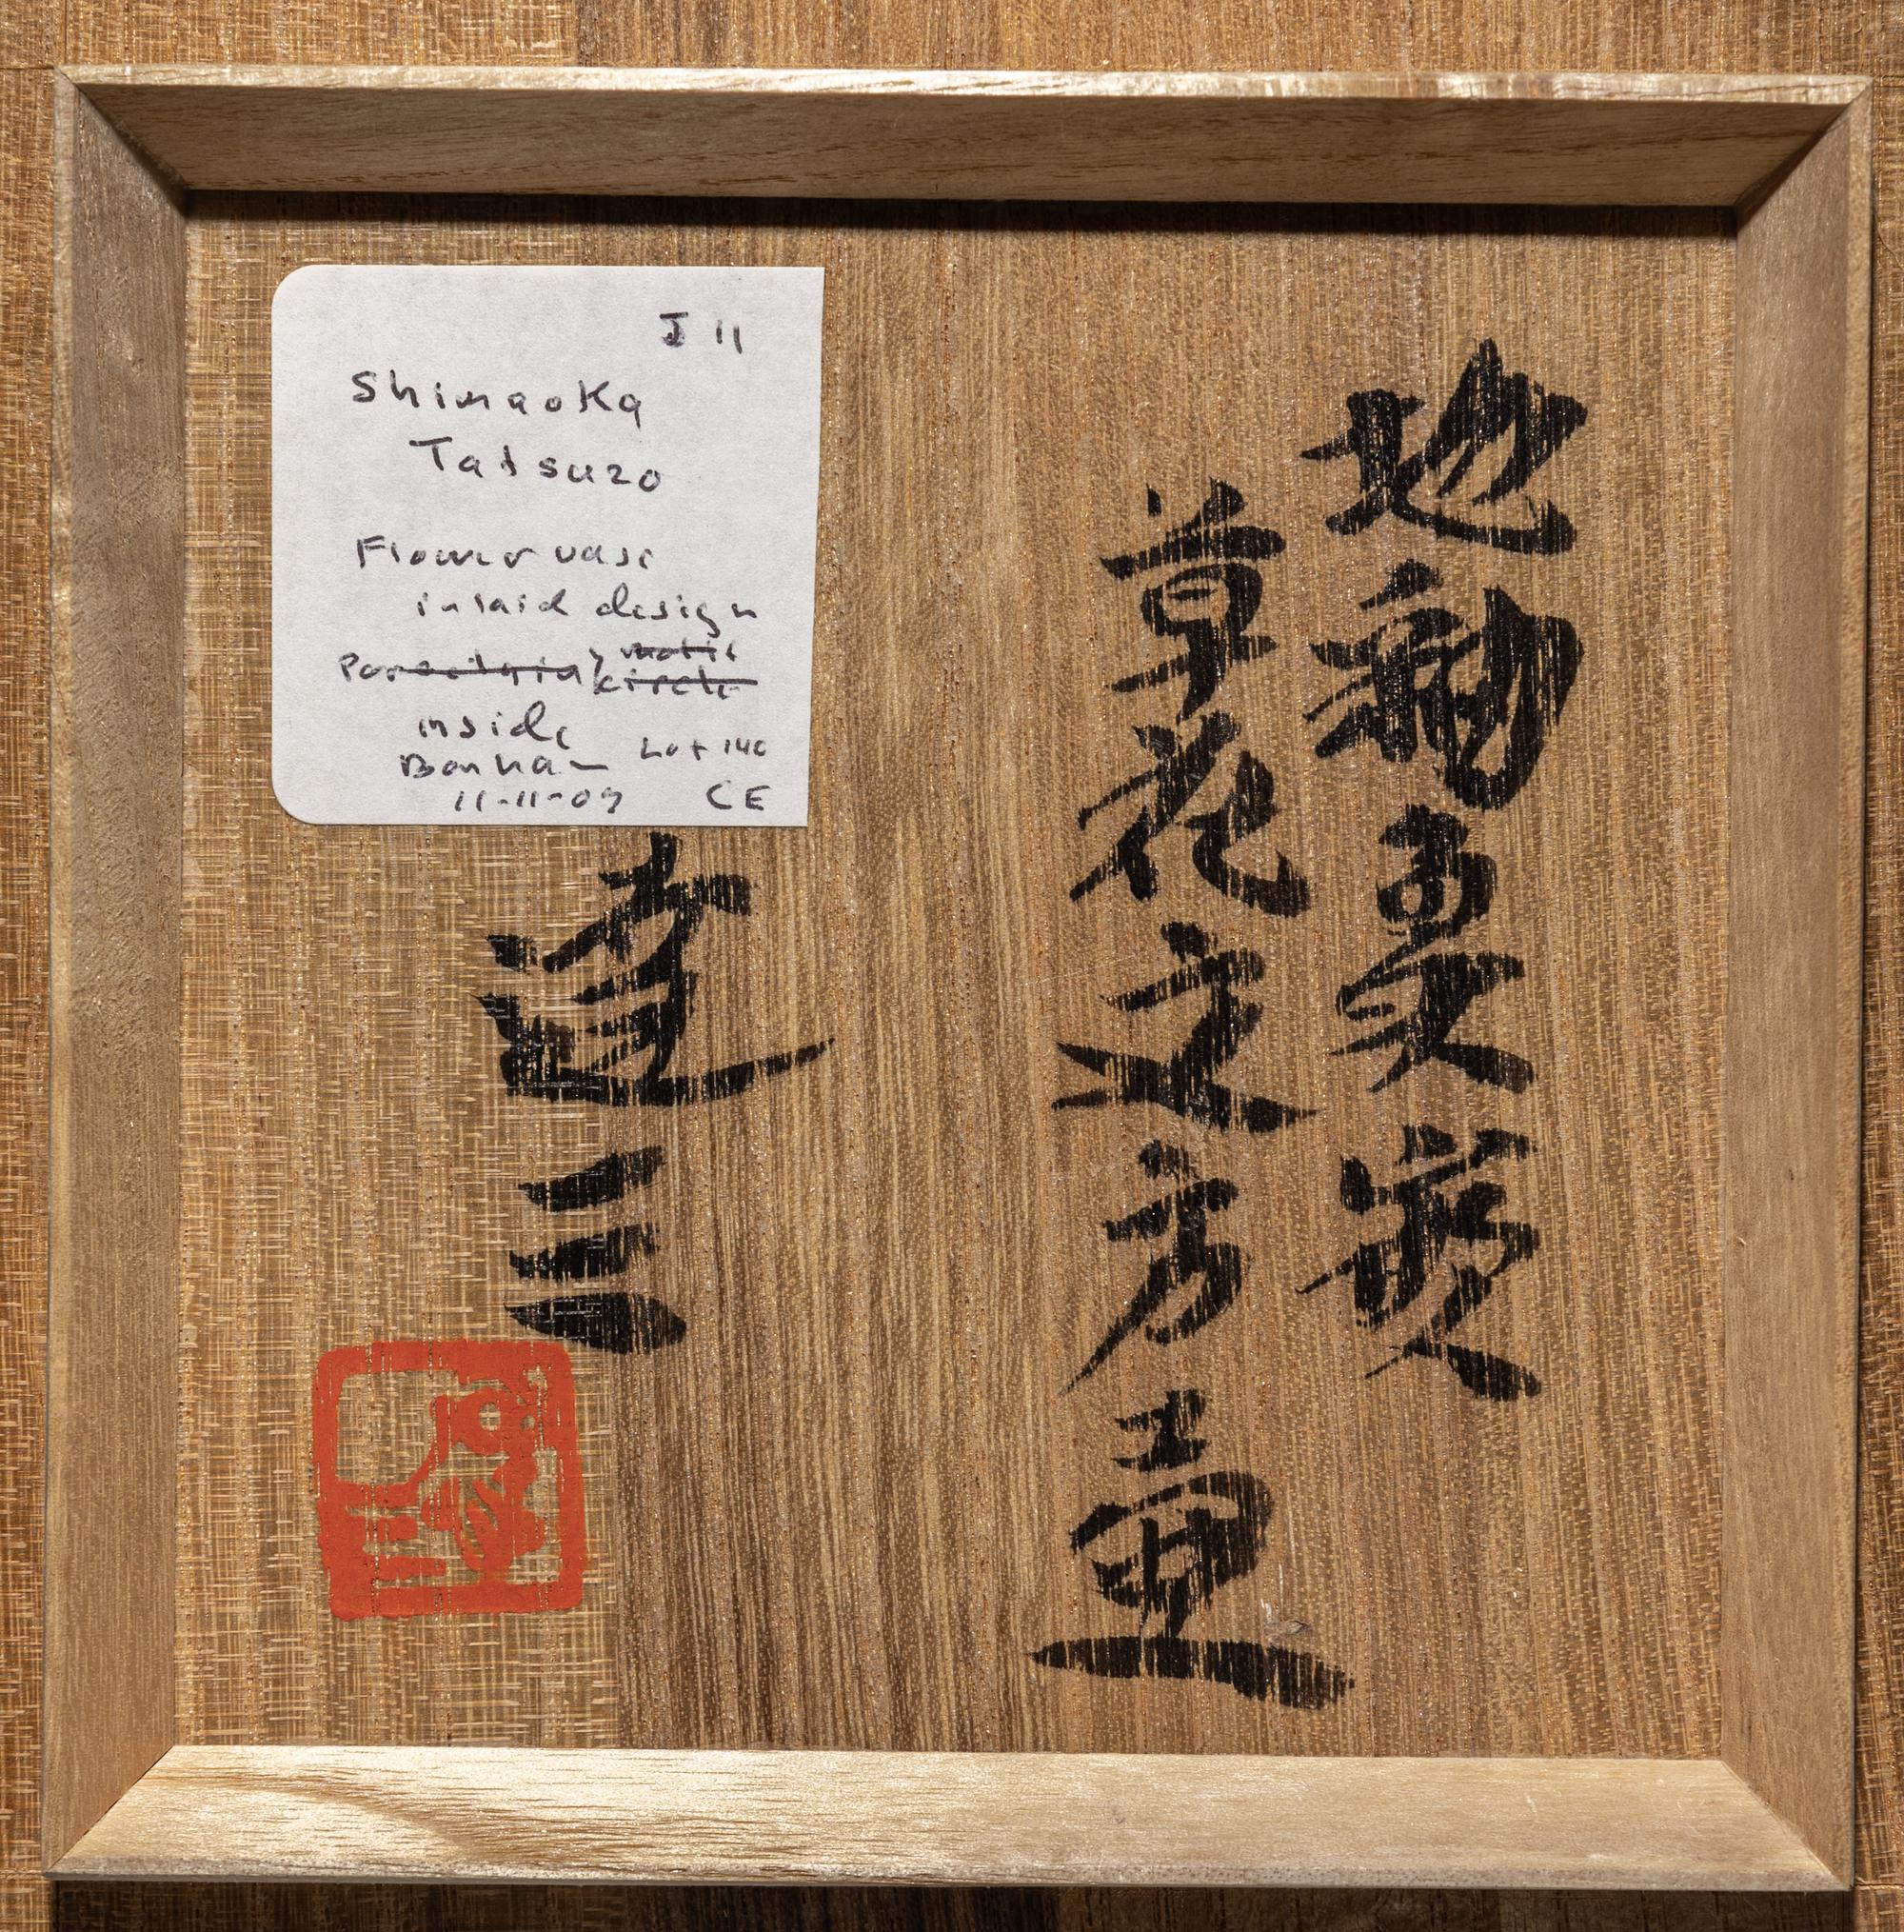 地釉象嵌
草花文方壺
達三
J 11
Shimaoka
Tatsuzo
Flower vase
inlaid design
inside
Bonham Lot 140
11-11-09 CE